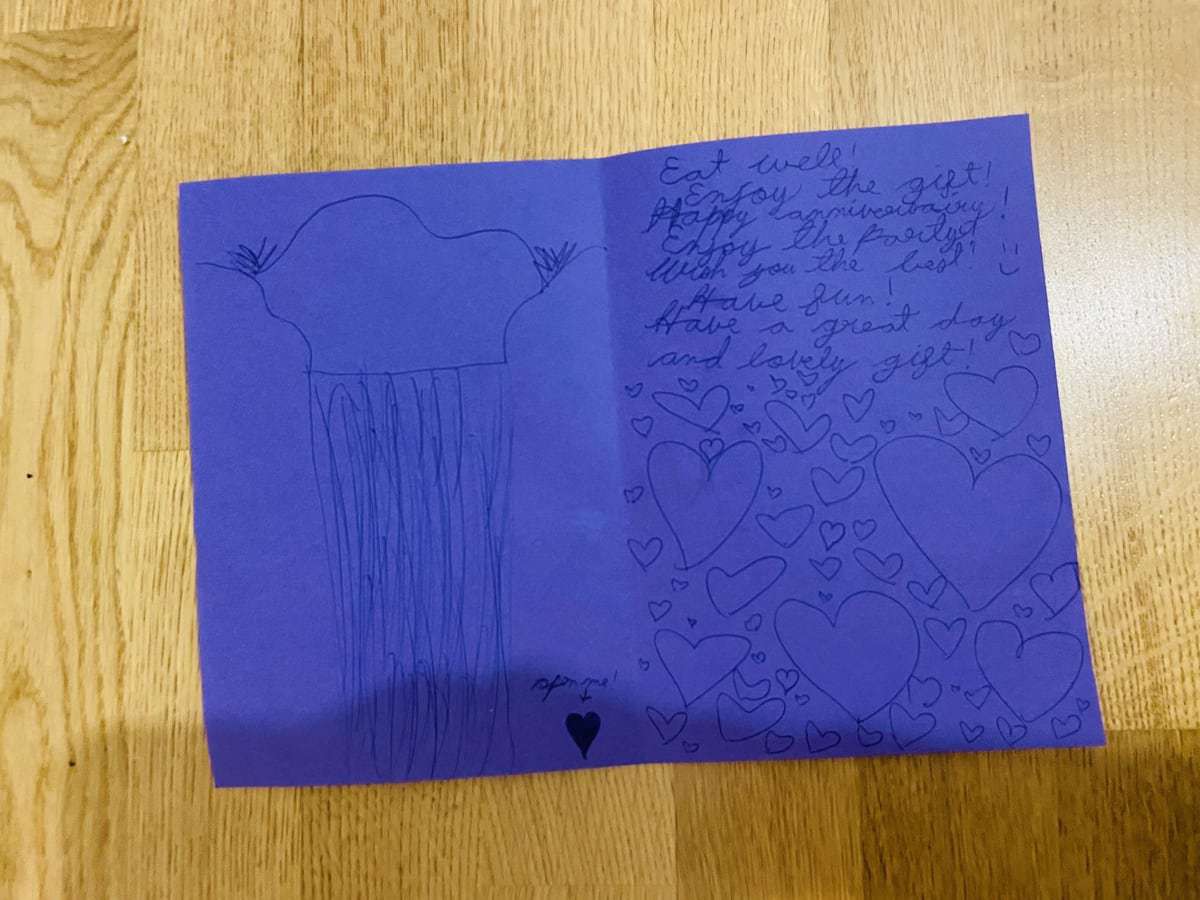 Eat well!
Enjoy the gift!
Happy anniversairy!
Enjoy the party!
Wish you the best! :)
Have fun!
Have a great day
and lovely gift!